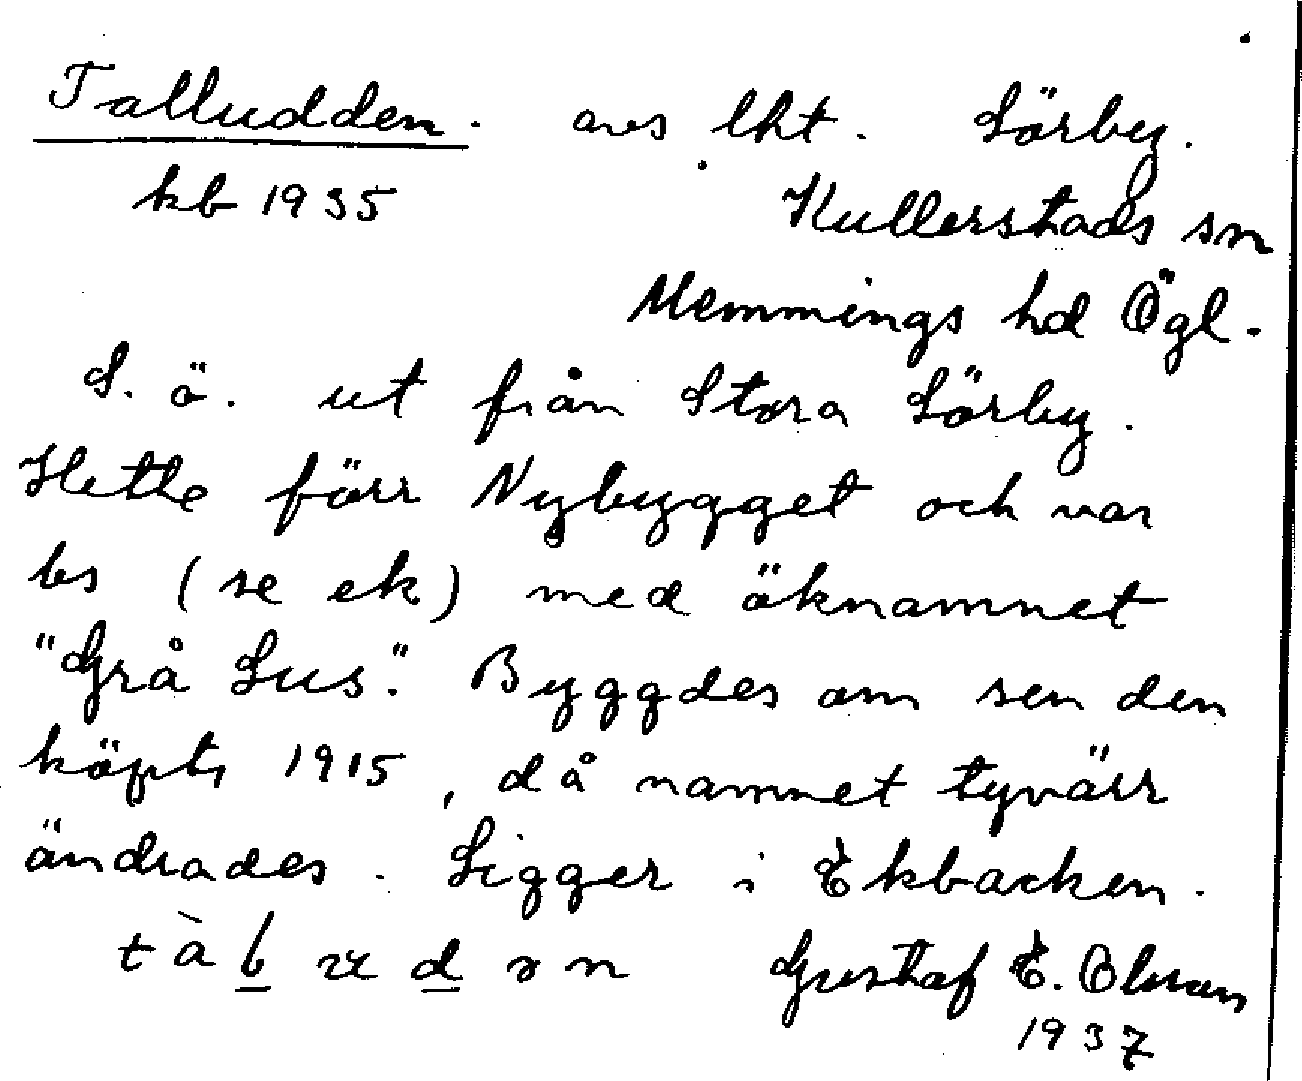 Talludden. avs lht. Sörby.
kb 1935 Kullerstads sn
Memmings hd Ögl.
S. ö. ut från Stora Sörby.
Hette förr Nybygget och var
bs (se ek) med öknamnet
"Grå Lus". Byggdes om sen den
köpts 1915, då namnet tyvärr
ändrades. Ligger i Ekbacken.
Gustaf E. Olsson
1937